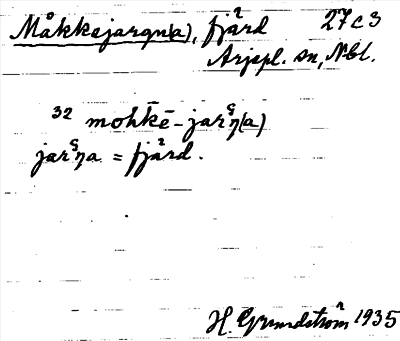 Måkkejarqn(a), fjärd 27c3
Arjepl. sn, Nbl.
32 mohkē-jarᶝŋ(a)
jarᶝŋa = fjärd.
H. Grundström 1935